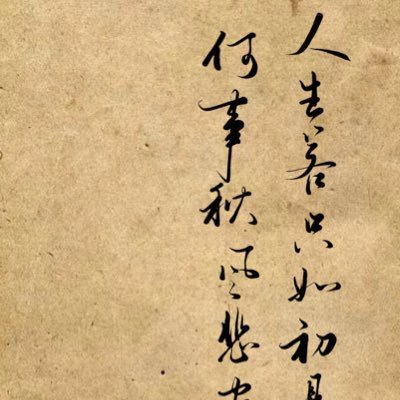 人生若只如初見
何事秋風悲